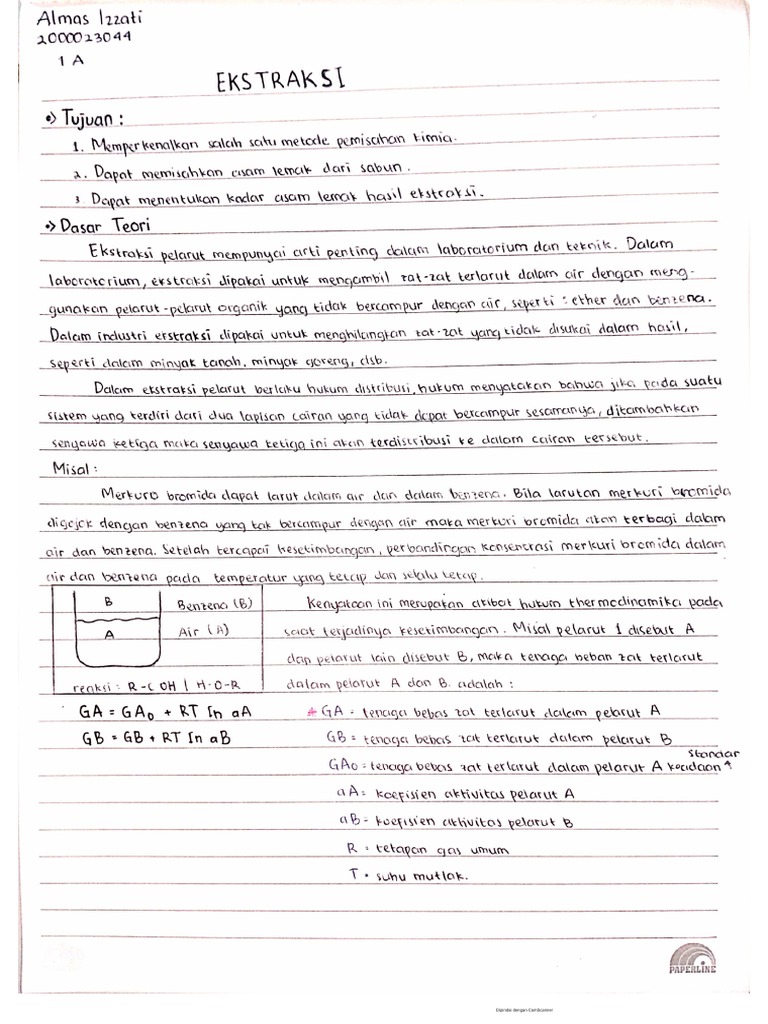 Almas Izzati
2000023044
1 A
EKSTRAKSI
•> Tujuan :
1. Memperkenalkan salah satu metode pemisahan kimia.
2. Dapat memisahkan asam lemak dari sabun.
3. Dapat menentukan kadar asam lemak hasil ekstraksi.
•> Dasar Teori
Ekstraksi pelarut mempunyai arti penting dalam laboratorium dan teknik. Dalam
laboratorium, ekstraksi dipakai untuk mengambil zat-zat terlarut dalam air dengan meng-
gunakan pelarut-pelarut organik yang tidak bercampur dengan air, seperti : ether dan benzena.
Dalam industri erstraksi dipakai untuk menghilangkan zat-zat yang tidak disukai dalam hasil,
seperti dalam minyak tanah, minyak goreng, dsb.
Dalam ekstraksi pelarut berlaku hukum distribusi, hukum menyatakan bahwa jika pada suatu
sistem yang terdiri dari dua lapisan cairan yang tidak dapat bercampur sesamanya, ditambahkan
senyawa ketiga maka senyawa ketiga ini akan terdistribusi ke dalam cairan tersebut.
Misal :
Merkuro bromida dapat larut dalam air dan dalam benzena. Bila larutan merkuri bromida
digojok dengan benzena yang tak bercampur dengan air maka merkuri bromida akan terbagi dalam
air dan benzena. Setelah tercapai kesetimbangan, perbandingan konsentrasi merkuri bromida dalam
air dan benzena pada temperatur yang tetap dan selalu tetap.
B Benzena (B)
A Air (A)
reaksi : R-COH | H-O-R
Kenyataan ini merupakan akibat hukum thermodinamika pada
saat terjadinya kesetimbangan. Misal pelarut 1 disebut A
dan pelarut lain disebut B, maka tenaga beban zat terlarut
dalam pelarut A dan B. adalah :
GA = GAo + RT ln aA
GB = GB + RT ln aB
* GA = tenaga bebas zat terlarut dalam pelarut A
GB = tenaga bebas zat terlarut dalam pelarut B
GAo = tenaga bebas zat terlarut dalam pelarut A keadaan ^ standar
aA = koefisien aktivitas pelarut A
aB = koefisien aktivitas pelarut B
R = tetapan gas umum
T = suhu mutlak.
PAPERLINE
Dipindai dengan CamScanner